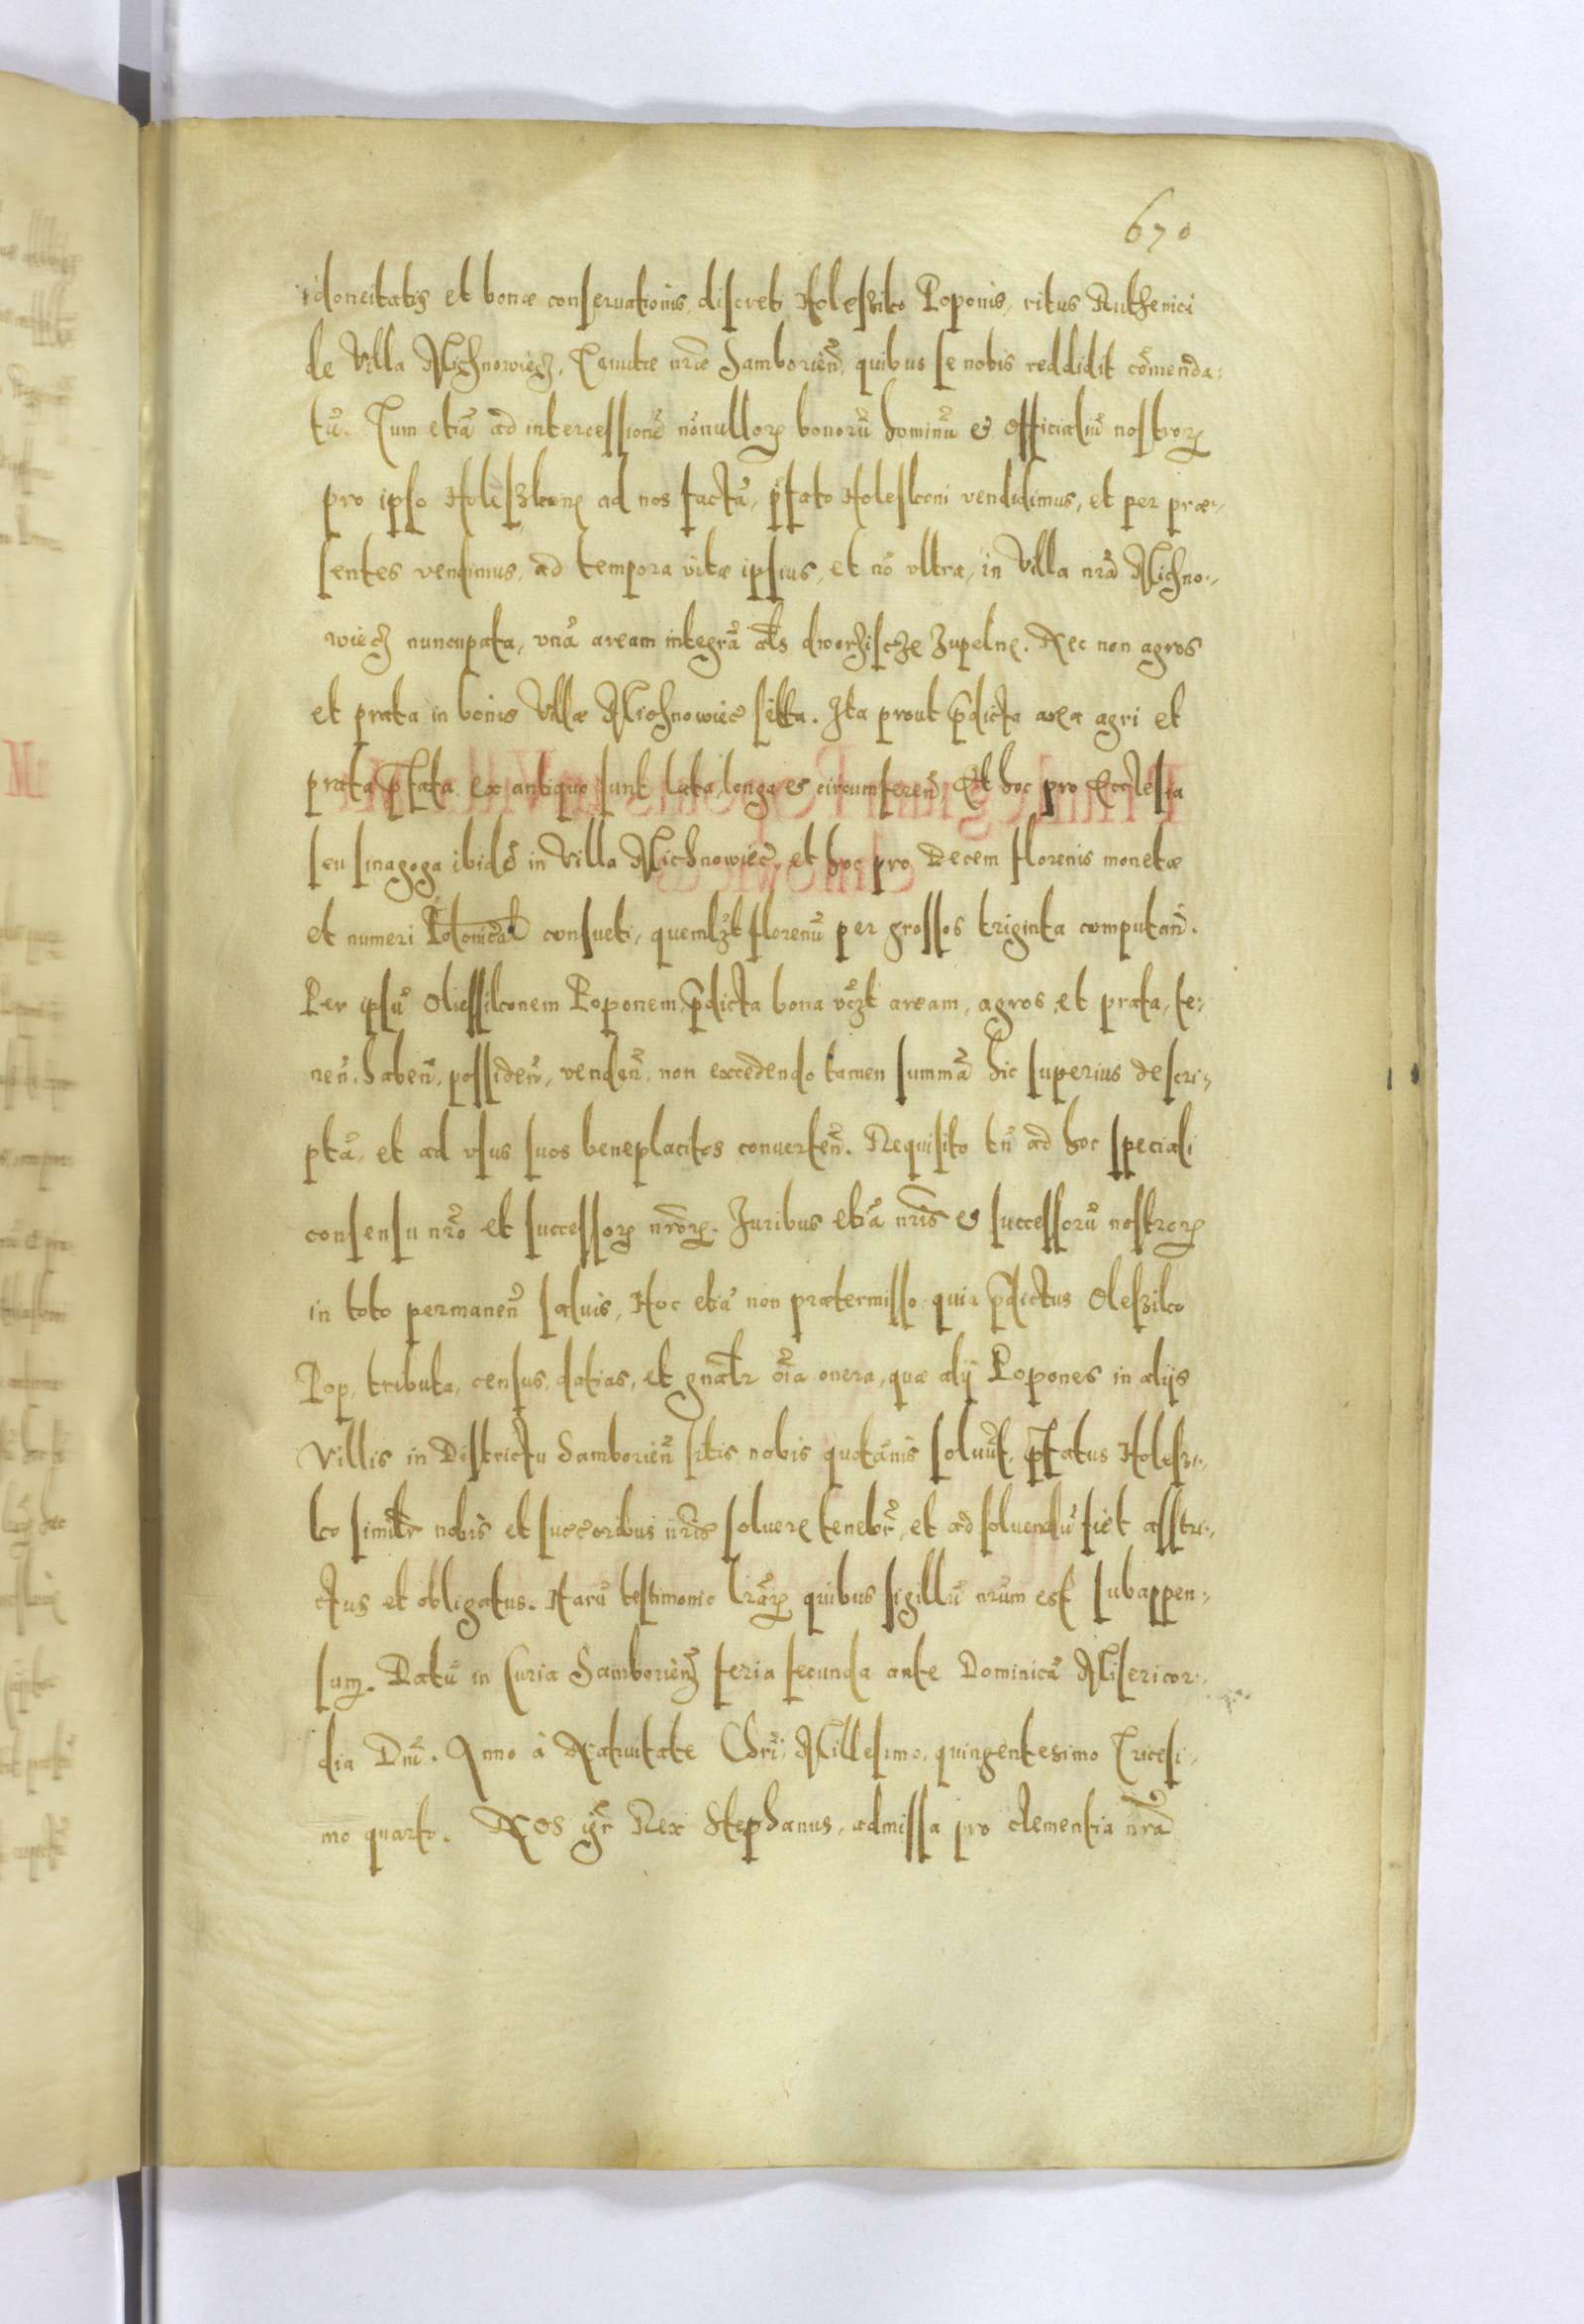 670
idoneitatis et bonæ conseruationis discreti Holeszko Poponis, ritus Ruthenici
de Villa Michnowiecz, Tenutæ nr̃æ Samborieñ, quibus se nobis reddidit cõmenda:
tũ. Tum etiã ad intercessionẽ nõnullorꝫ bonorũ hominũ et officialiũ nostrorꝫ
pro ipso ad nos factã, p̃fato Holeskoni vendidimus, et per præ:
sentes vendimus, ad tempora vitæ ipsius, et nõ vltra, in Villa nr̃a Michno:
wiecz nuncupata, vnã aream integrã als dworziscze zupelne. Nec non agros
et prata in bonis Villæ Michnowiec sitta. Ita prout p̃dicta area agri et
prata p̃fata ex antiquo sunt lata, longa et circumfereñ. Et hoc pro Ecclesia
seu sinagoga ibidẽ in Villa Michnowiec, et hoc pro Decem florenis monetæ
et numeri consueti, quemlꝫt florenũ per grossos triginta computañ.
Per ipsũ Poponem p̃dicta bona vꝫt aream, agros, et prata, te:
neñ, habeñ, possideñ, vendeñ, non excedendo tamen summã hic superius descri:
ptã, et ad vsus suos beneplacitos conuerteñ. Requisito tñ ad hoc speciali
consensu nr̃o et successorꝫ nr̃orꝫ. Iuribus etiã nr̃is et successorũ nostrorꝫ
in toto permaneñ saluis, Hoc etiã non prætermisso quia p̃dictus Oleszko
Pop, tributa, census, datias, et gñalr õia onera, quæ alij Popones in alijs
Villis in Districtu Samborieñ sitis nobis quotãnis soluũt, p̃fatus Holesz:
ko similr nobis et succoribus nr̃is soluere tenebr̃, et ad soluendũ fiet asstri:
ctus et obligatus. Harũ testimonio lr̃arꝫ quibus sigillũ nr̃um est subappen:
sum. Datũ in Curia Samborieñ feria secunda ante Dominicã Misericor:
dia Dnĩ. Anno à Natiuitate Chrĩ, Millesimo, quingentesimo Tricesi:
mo quarto. NOS igr̃ Rex Stephanus, admissa pro clementia nr̃a